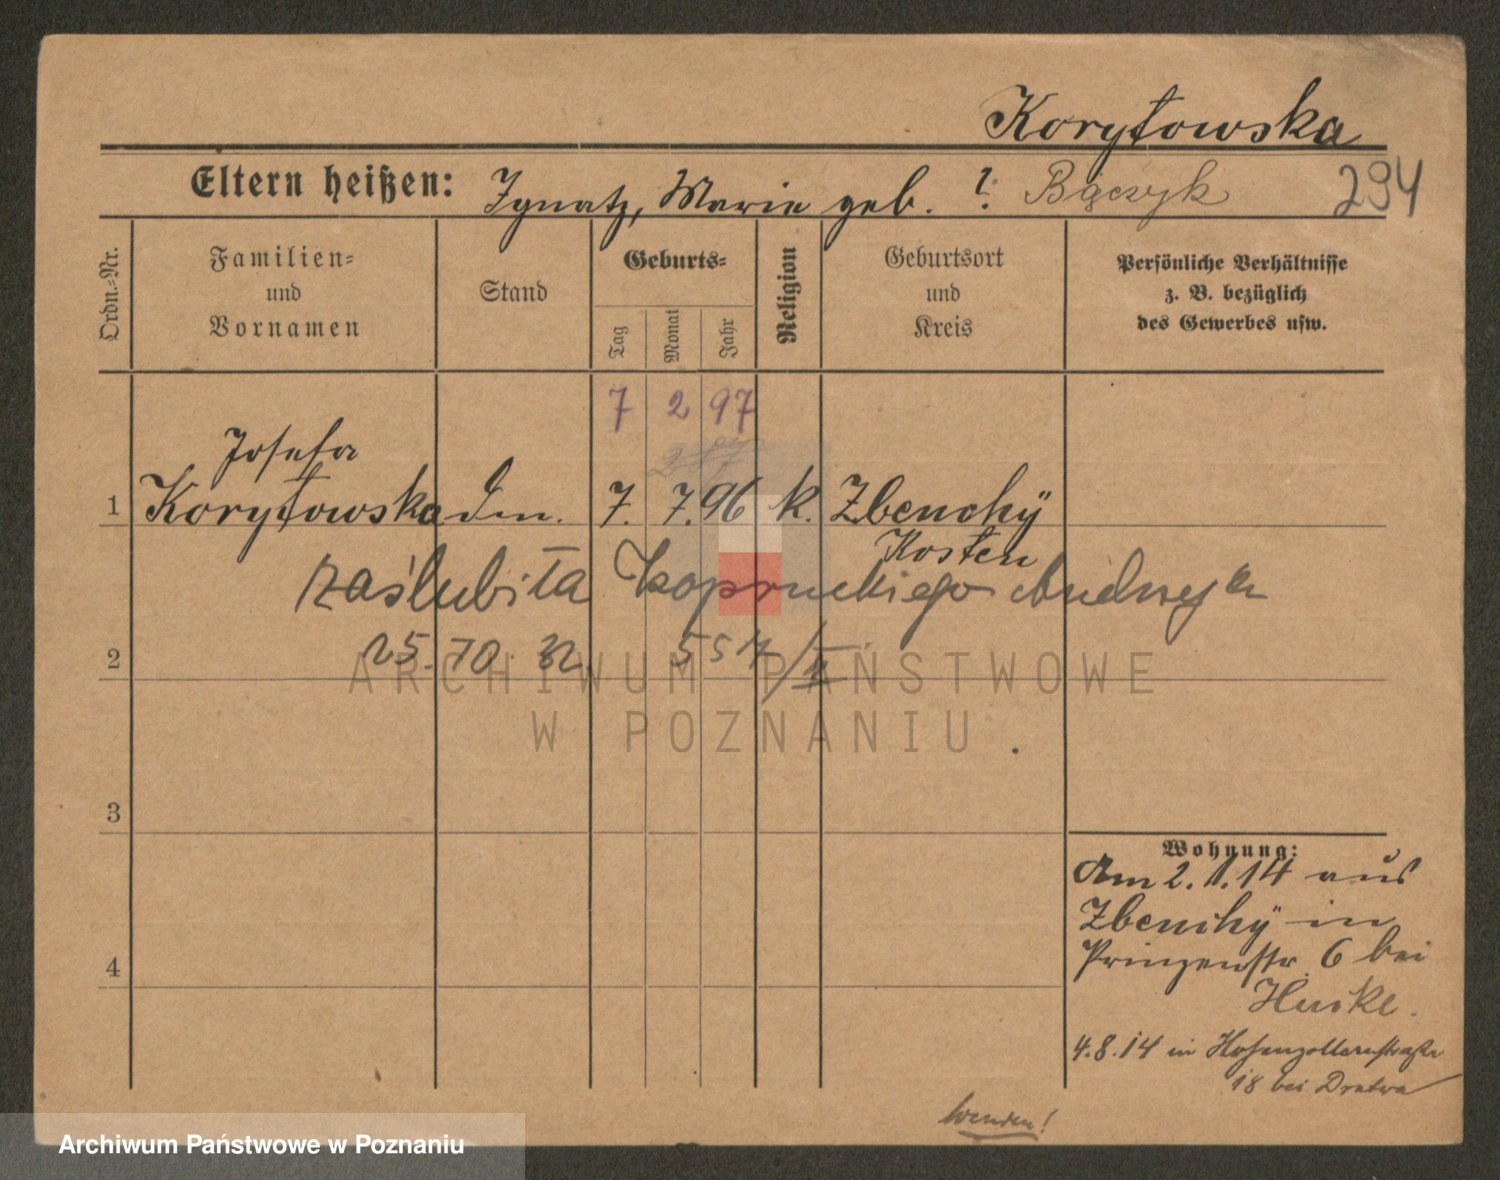 Korytowska
Eltern heißen: Ignatz, Marie geb. ? Bączyk 294
Ordn.-Nr.
Familien-
und
Vornamen
Stand
Geburts-
Tag
Monat
Jahr
Religion
Geburtsort
und
Kreis
Persönliche Verhältnisse
z. B. bezüglich
des Gewerbes usw.
7 2 97
Josefa
1 Korytowska 7. 7. 96 k. Zbenchÿ
Kosten
zaślubiła Andrzeja
2 25. 10. 32. 557/II
ARCHIWUM PAŃSTWOWE
W POZNANIU
3
Wohnung:
Am 2.1.14 aus
Zbenchÿ in
4 Prinzenstr. 6 bei
Huske.
4.8.14 in Hohenzollernstraße
18 bei Dratwa
wenden!
Archiwum Państwowe w Poznaniu